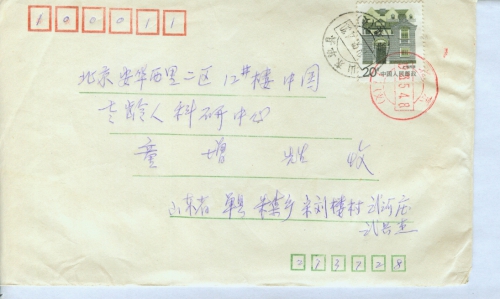 100011
20 中国人民邮政
北京安华西里二区12#楼中国
老龄人科研中心
童增先生收
山东省单县朱集乡宋刘楼村刘河庄
273728